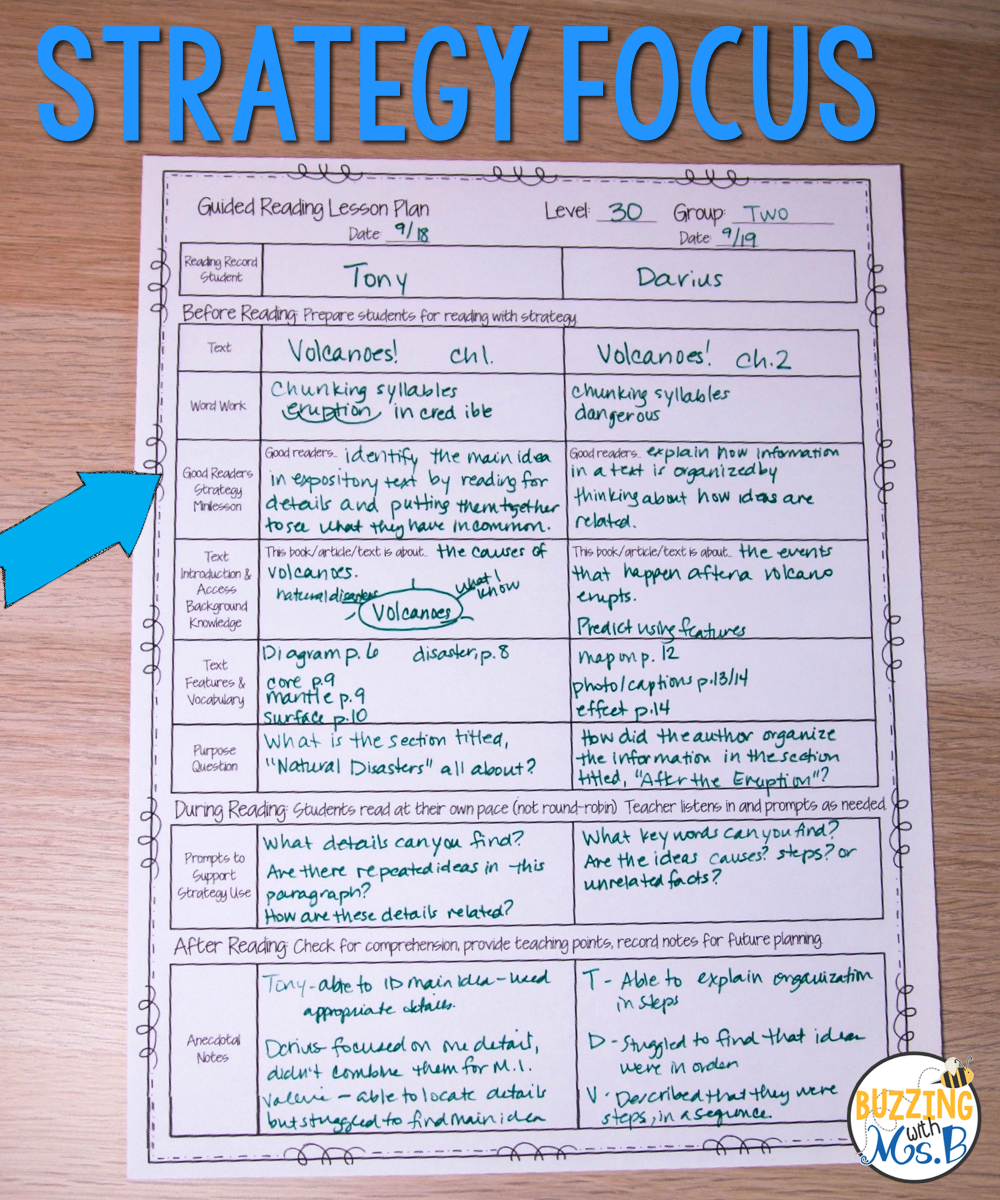 STRATEGY FOCUS
Guided Reading Lesson Plan Level: 30 Group: Two
Date: 9/18 Date: 9/19
Reading Record
Student
Tony
Darius
Before Reading: Prepare students for reading with strategy
Text
Volcanoes! ch1.
Volcanoes! ch.2
Word Work
Chunking syllables
eruption in cred ible
chunking syllables
dangerous
Good Readers
Strategy
Minilesson
Good readers... identify the main idea
in expository text by reading for
details and putting them together
to see what they have in common.
Good readers... explain how information
in a text is organized by
thinking about how ideas are
related.
Text
Introduction &
Access
Background
Knowledge
This book/article/text is about... the causes of
volcanoes.
natural disasters
Volcanoes
what I
know
This book/article/text is about... the events
that happen after a volcano
erupts.
Predict using features
Text
Features &
Vocabulary
Diagram p. 6 disaster, p. 8
core p.9
mantle p.9
surface p.10
map on p. 12
photo/captions p.13/14
effect p.14
Purpose
Question
What is the section titled,
"Natural Disasters" all about?
How did the author organize
the information in the section
titled, "After the Eruption"?
During Reading: Students read at their own pace (not round-robin) Teacher listens in and prompts as needed
Prompts to
Support
Strategy Use
What details can you find?
Are there repeated ideas in this
paragraph?
How are these details related?
What key words can you find?
Are the ideas causes? steps? or
unrelated facts?
After Reading: Check for comprehension, provide teaching points, record notes for future planning.
Anecdotal
Notes
Tony - able to ID main idea - used
appropriate details.
Darius - focused on one detail,
didn't combine them for M.I.
Valerie - able to locate details
but struggled to find main idea
T - Able to explain organization
in steps
D - Struggled to find that ideas
were in order
V - Described that they were
steps, in a sequence.
BUZZING
with
Ms.B